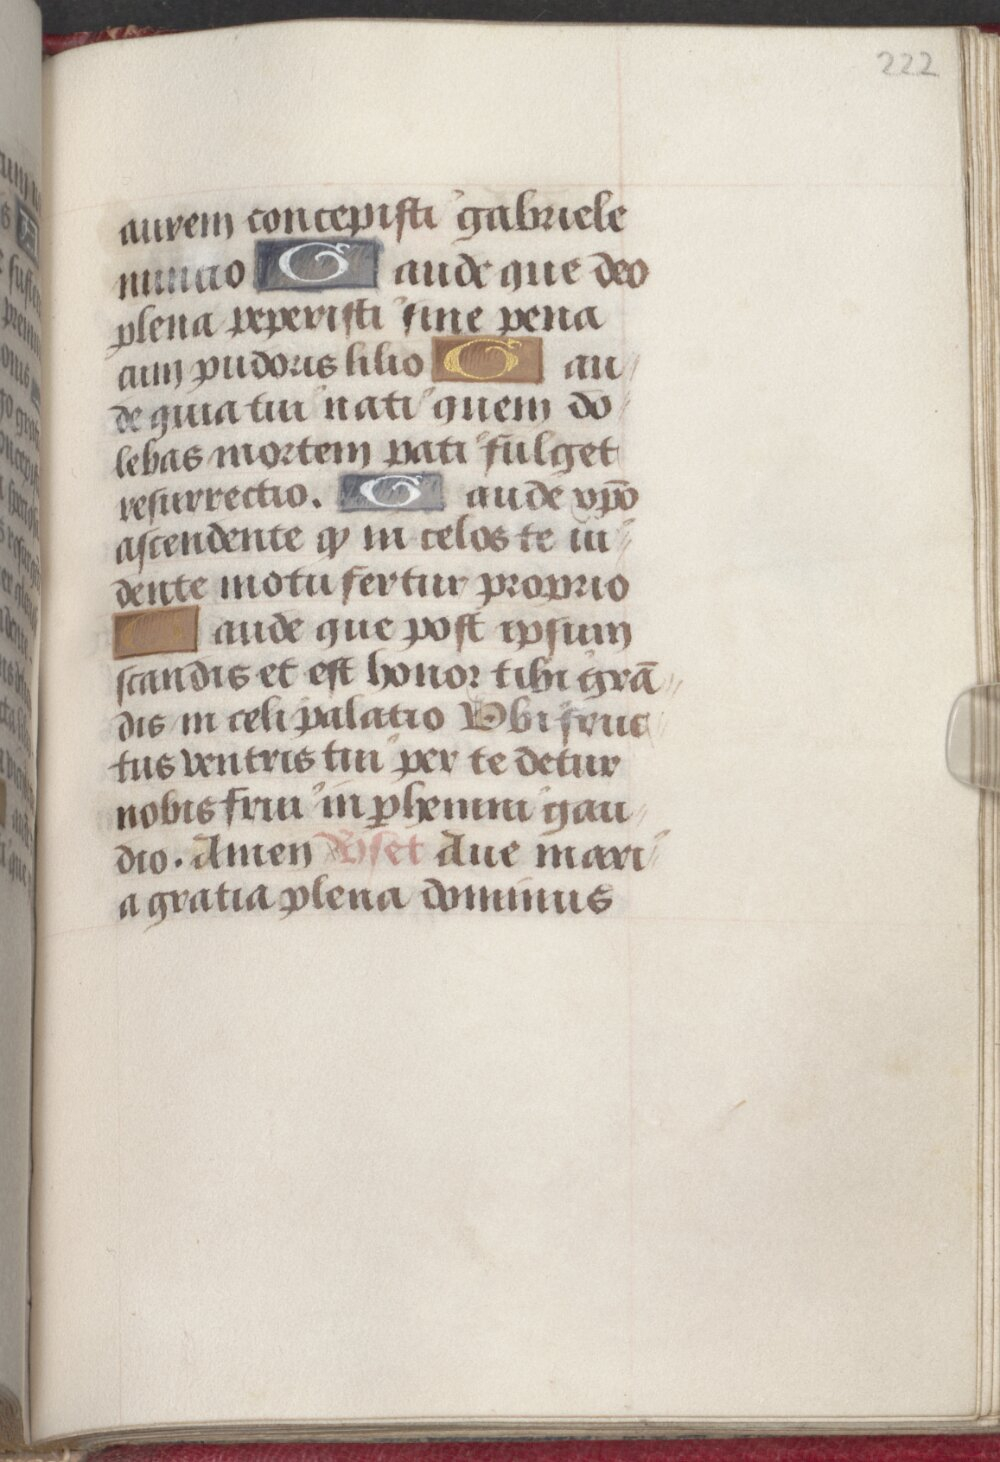 222
aurem concepisti gabriele
nuncio Gaude que deo
plena peperisti sine pena
cum pudoris lilio Gau
de quia tui nati quem do
lebas mortem pati fulget
resurrectio. Gaude xp̄o
ascendente qꝫ in celos te ui
dente motu fertur proprio
Gaude que post ipsum
scandis et est honor tibi grā
dis in celi palatio Vbi fruc
tus ventris tui per te detur
nobis frui in perhenni gau
dio. Amen Ave mari
a gratia plena dominus